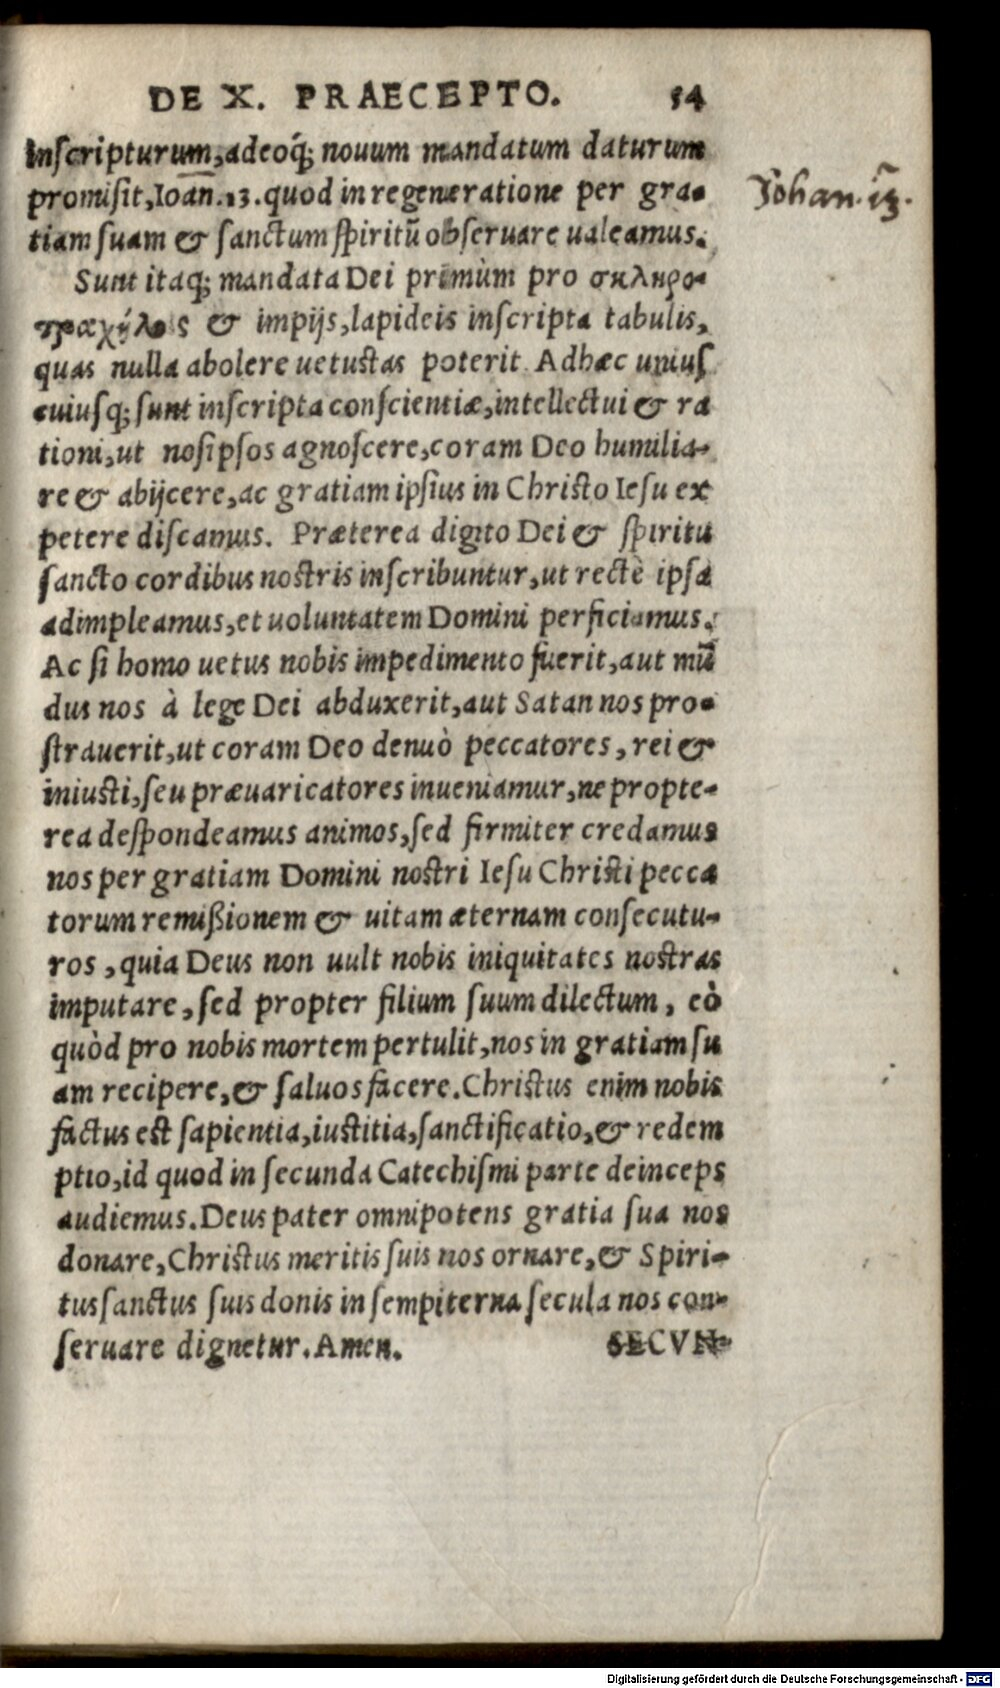 DE X. PRAECEPTO. 54
Inſcripturum, adeoq́; nouum mandatum daturum
promiſit, Ioan. 13. quod in regeneratione per gra-
tiam ſuam & ſanctum ſpiritū obſeruare ualeamus.
Johan. 13.
Sunt itaq; mandata Dei primùm pro σκληρο-
τραχήλοις & impijs, lapideis inſcripta tabulis,
quas nulla abolere uetustas poterit. Adhæc unius
cuiusq; ſunt inſcripta conſcientiæ, intellectui & ra
tioni, ut noſipſos agnoſcere, coram Deo humilia-
re & abijcere, ac gratiam ipſius in Christo Ieſu ex
petere diſcamus. Præterea digito Dei & ſpiritu
ſancto cordibus nostris inſcribuntur, ut rectè ipſa
adimpleamus, et uoluntatem Domini perficiamus.
Ac ſi homo uetus nobis impedimento fuerit, aut mū
dus nos à lege Dei abduxerit, aut Satan nos pro-
ſtrauerit, ut coram Deo denuò peccatores, rei &
iniusti, ſeu præuaricatores inueniamur, ne propte-
rea deſpondeamus animos, ſed firmiter credamus
nos per gratiam Domini nostri Ieſu Christi pecca
torum remißionem & uitam æternam conſecutu-
ros, quia Deus non uult nobis iniquitates nostras
imputare, ſed propter filium ſuum dilectum, eò
quòd pro nobis mortem pertulit, nos in gratiam ſu
am recipere, & ſaluos facere. Christus enim nobis
factus est ſapientia, iustitia, ſanctificatio, & redem
ptio, id quod in ſecunda Catechiſmi parte deinceps
audiemus. Deus pater omnipotens gratia ſua nos
donare, Christus meritis ſuis nos ornare, & Spiri-
tus ſanctus ſuis donis in ſempiterna ſecula nos con-
ſeruare dignetur. Amen. SECVN-
Digitalisierung gefördert durch die Deutsche Forschungsgemeinschaft - DFG